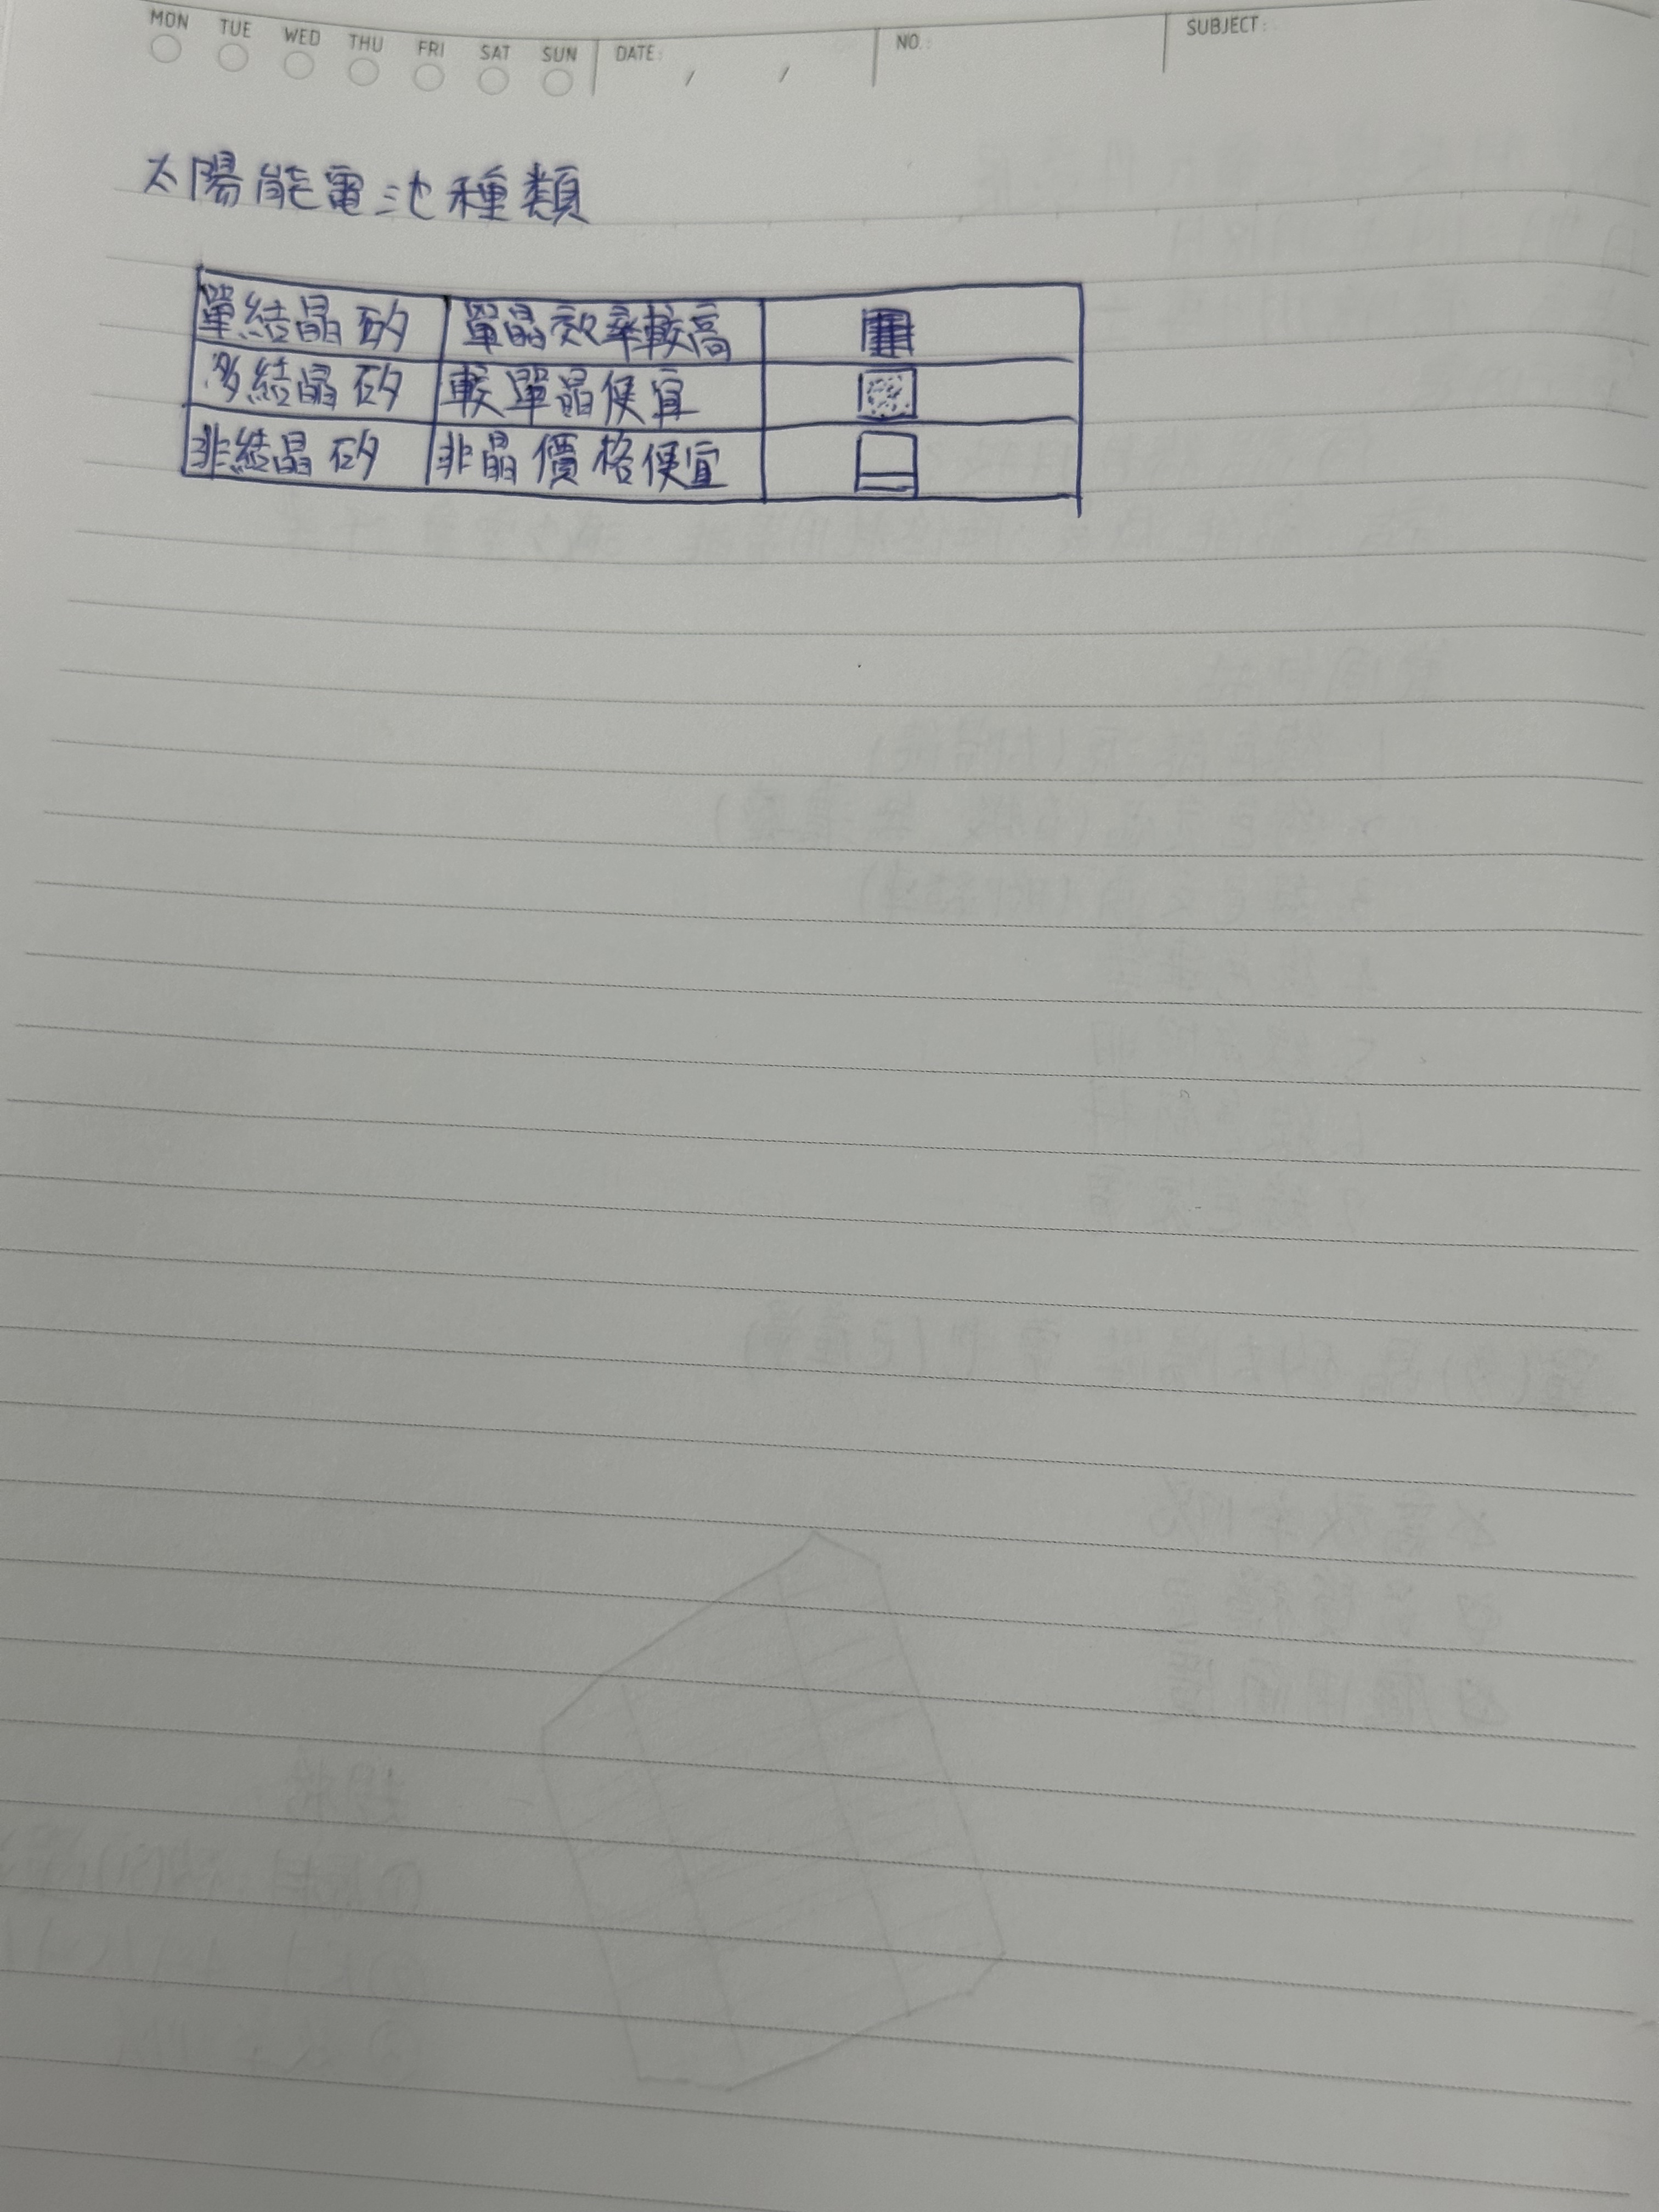 MON TUE WED THU FRI SAT SUN DATE: / / NO.: SUBJECT:
太陽能電池種類
單結晶矽 單晶效率較高
多結晶矽 較單晶便宜
非結晶矽 非晶價格便宜